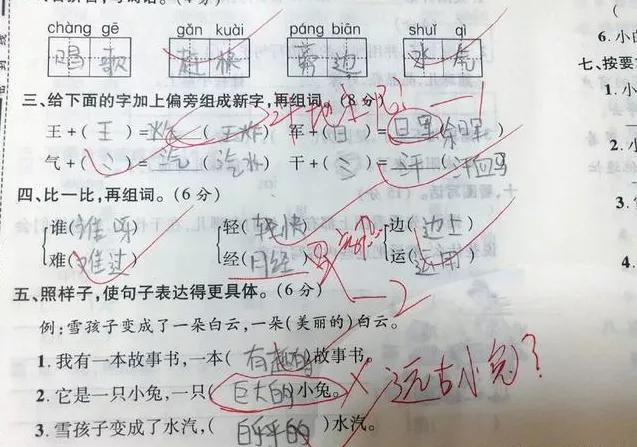 chàng gē gǎn kuài páng biān shuǐ qì
唱歌 赶快 旁边 水气
三、给下面的字加上偏旁组成新字,再组词。(8分) -1
王+(王)= (王炸) 军+(日)=
气+(氵)=汽(汽水) 干+(氵)=汗(汗血马)
四、比一比,再组词。(6分)
谁(谁呀) 轻(轻快) 边(边上)
难(难过) 经(月经) 运(运用)
-2
五、照样子,使句子表达得更具体。(6分)
例:雪孩子变成了一朵白云,一朵(美丽的)白云。
1.我有一本故事书,一本(有趣的)故事书。
2.它是一只小兔,一只(巨大的)小兔。 远古小兔?
3.雪孩子变成了水汽,( )水汽。
6.小白
七、按要
1.小
2.小
4.